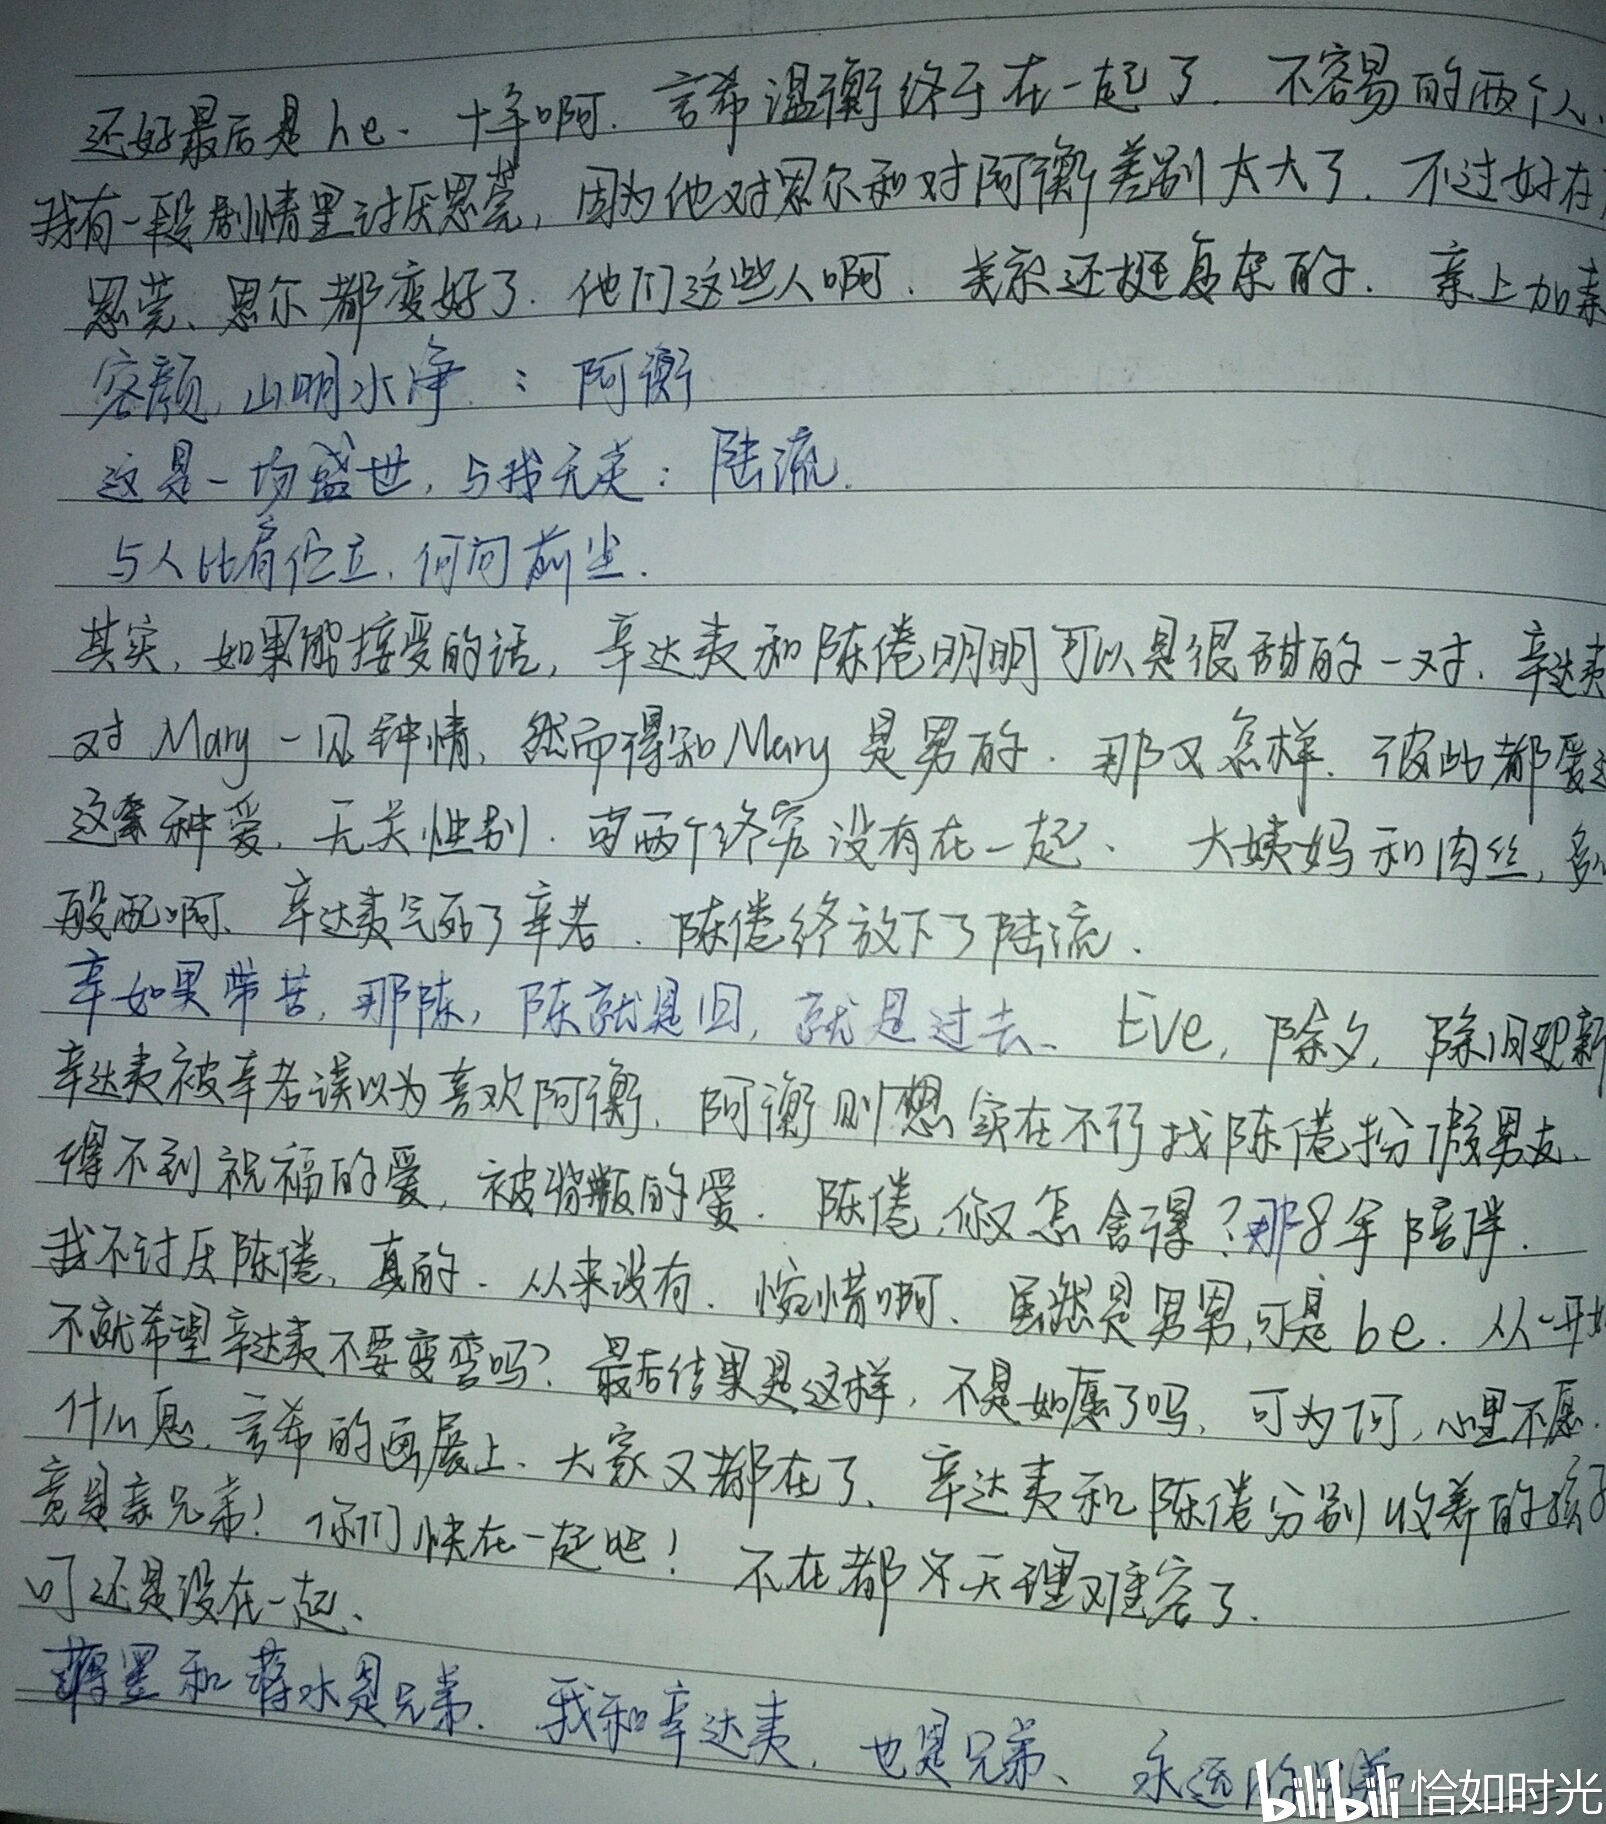 还好最后是he. 十年啊. 言希温衡终于在一起了. 不容易的两个人.
我有一段剧情里讨厌思莞, 因为他对思尔和对阿衡差别太大了. 不过好在
思莞、思尔都变好了. 他们这些人啊. 关系还挺复杂的. 亲上加亲
容颜, 山明水净: 阿衡
这是一场盛世, 与我无关: 陆流.
与人比肩伫立, 何问前尘.
其实, 如果能接受的话, 辛达夷和陈倦明明可以是很甜的一对. 辛达夷
对Mary一见钟情, 然而得知Mary是男的. 那又怎样. 彼此都爱过
这种爱, 无关性别. 可两个终究没有在一起. 大姨妈和肉丝, 多么
般配啊. 辛达夷气死了辛老. 陈倦终放下了陆流.
辛如果带苦, 那陈, 陈就是旧, 就是过去. Eve, 除夕, 除旧迎新
辛达夷被辛老误以为喜欢阿衡. 阿衡则想实在不行找陈倦扮假男友.
得不到祝福的爱, 被背叛的爱. 陈倦, 你又怎舍得? 那8年陪伴.
我不讨厌陈倦, 真的. 从来没有. 惋惜啊. 虽然是男男, 可是be. 从一开始
不就希望辛达夷不要变弯吗? 最后结果是这样, 不是如愿了吗, 可为何, 心里不愿.
什么恩. 言希的画展上. 大家又都在了. 辛达夷和陈倦分别收养的孩子
竟是亲兄弟! 你们快在一起吧! 不在都天理难容了.
可还是没在一起.
蒋墨和蒋水是兄弟. 我和辛达夷, 也是兄弟、永远的兄弟
bilibili 恰如时光